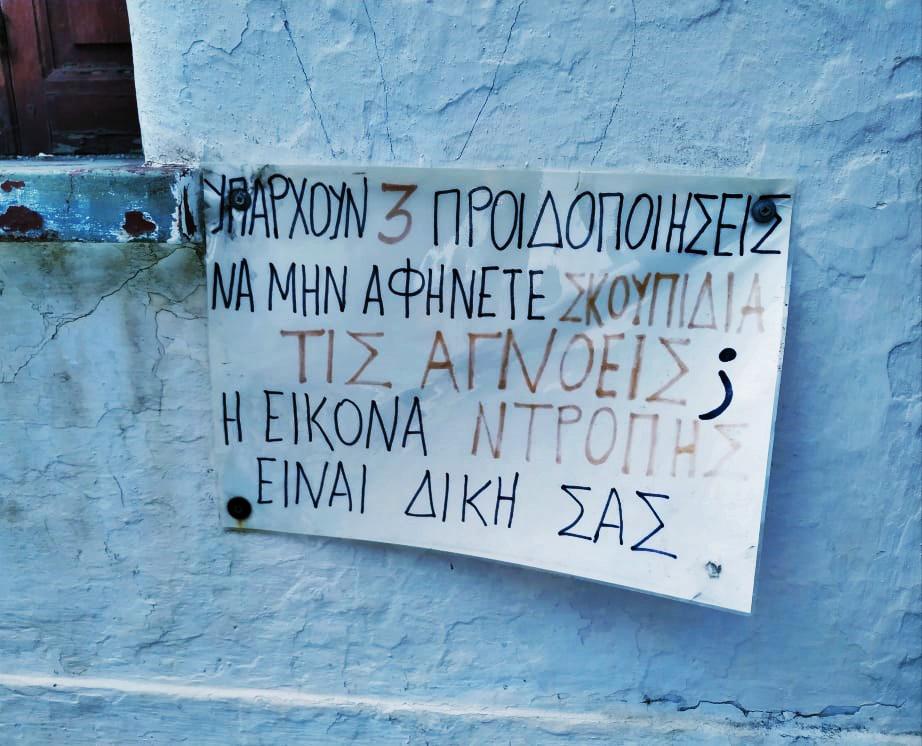 ΥΠΑΡΧΟΥΝ 3 ΠΡΟΙΔΟΠΟΙΗΣΕΙΣ
ΝΑ ΜΗΝ ΑΦΗΝΕΤΕ ΣΚΟΥΠΙΔΙΑ
ΤΙΣ ΑΓΝΟΕΙΣ ;
Η ΕΙΚΟΝΑ ΝΤΡΟΠΗΣ
ΕΙΝΑΙ ΔΙΚΗ ΣΑΣ